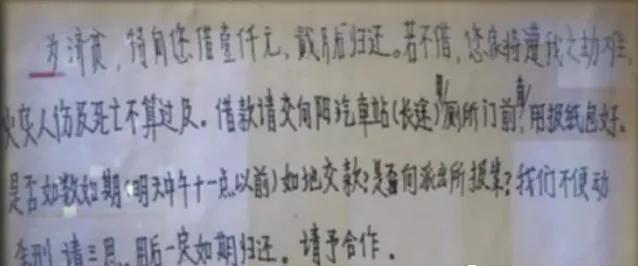 为济贫，特向您借壹仟元，贰月后归还。若不借，您家将遭我之劫难，
火灾人伤及死亡不算过及。借款请交向阳汽车站(长途)男厕所门前，用报纸包好。
是否如数如期(明天中午十一点以前)如地交款?是否向派出所报案?我们不便动
请三思。用后一定如期归还。请予合作。